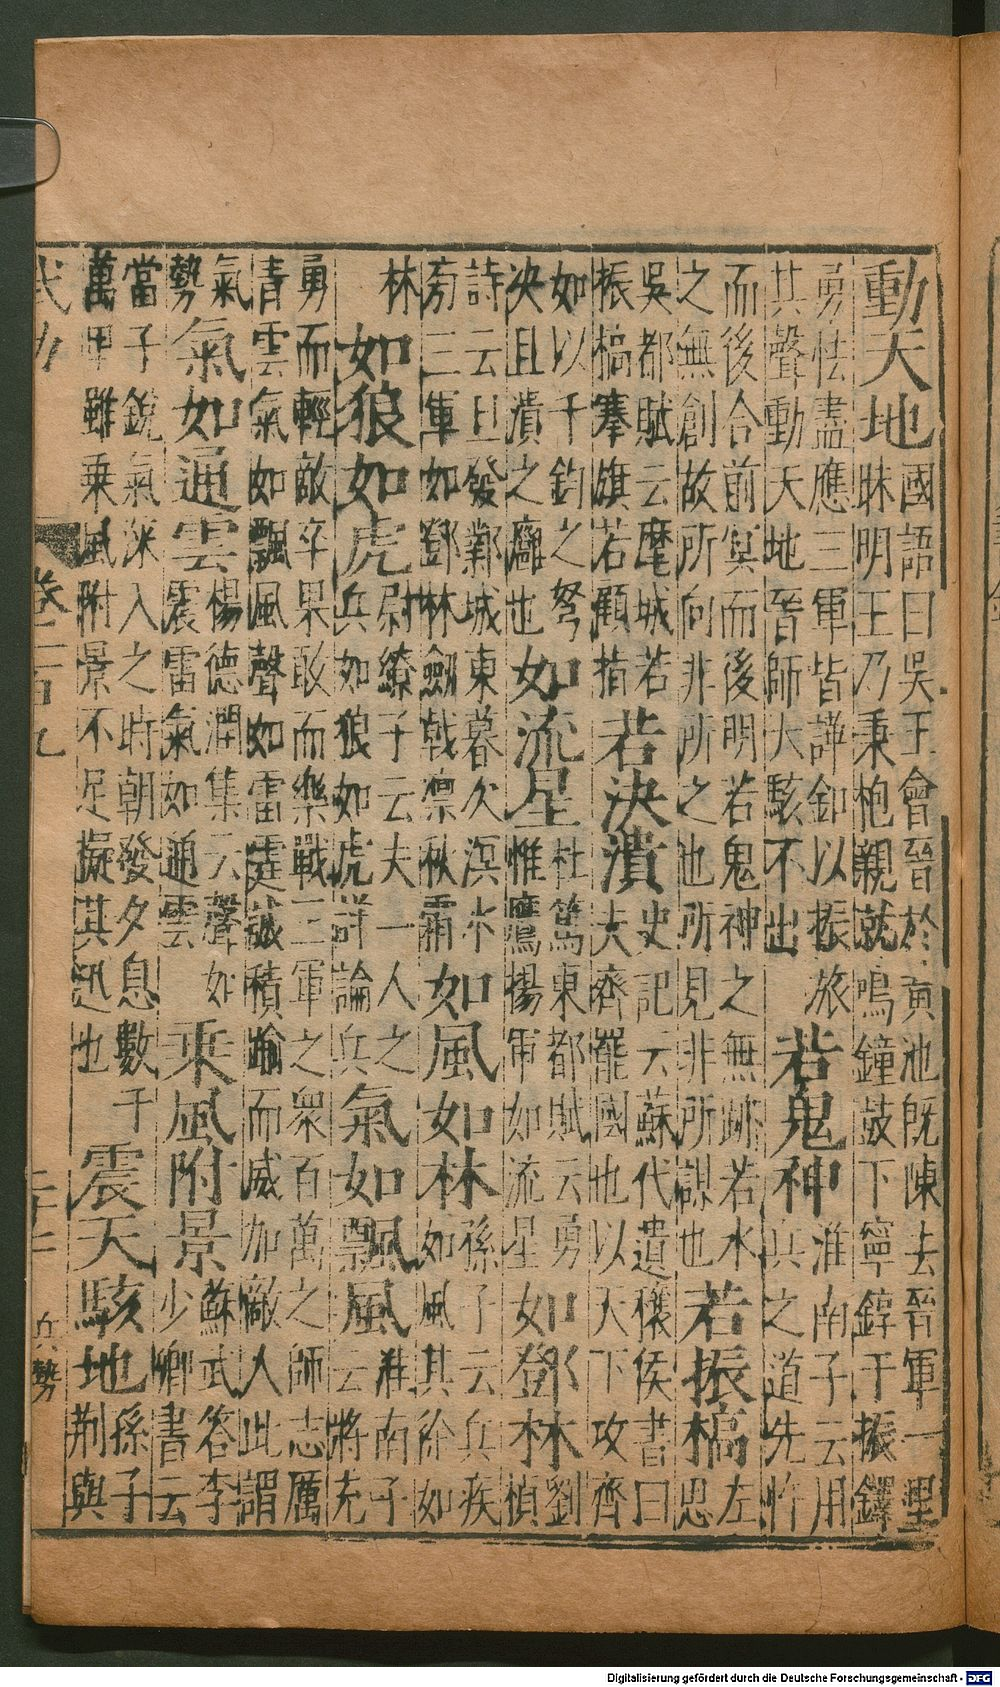 動天地
國語曰吳王會晉於黃池既陳去晉軍一里
昧明王乃秉枹親就鳴鐘鼓下寧錞于振鐸
勇怯盡應三軍皆譁釦以振旅
其聲動天地晉師大駭不出
若鬼神
淮南子云用
兵之道先忤
而後合前冥而後明若鬼神之無跡若水
之無創故所向非所之也所見非所謀也
若振槁
左
思
吳都賦云麾城若
振槁搴旗若顧指
若決潰
史記云蘇代遺穰侯書曰
夫齊罷國也以天下攻齊
如以千鈞之弩
决且潰之癰也
如流星
杜篤東都賦云勇
惟鷹揚軍如流星
如鄧林
劉
楨
詩云旦發鄴城東暮次溟水
旁三軍如鄧林劒戟凛秋霜
如風如林
孫子云兵疾
如風其徐如
林
如狼如虎
尉繚子云夫一人之
兵如狼如虎詳論兵
氣如飄風
淮南子
云將充
勇而輕敵卒果敢而樂戰三軍之衆百萬之師志厲
青雲氣如飄風聲如雷霆誠積踰而威加敵人此謂
氣
勢
氣如通雲
楊德潤集云聲如
震雷氣如通雲
乘風附景
蘇武答李
少卿書云
當子銳氣深入之時朝發夕息數千
萬甲雖乘風附景不足擬其迅也
震天駭地
孫子
荆與
武功
卷二百九
二十二
兵勢
Digitalisierung gefördert durch die Deutsche Forschungsgemeinschaft - DFG